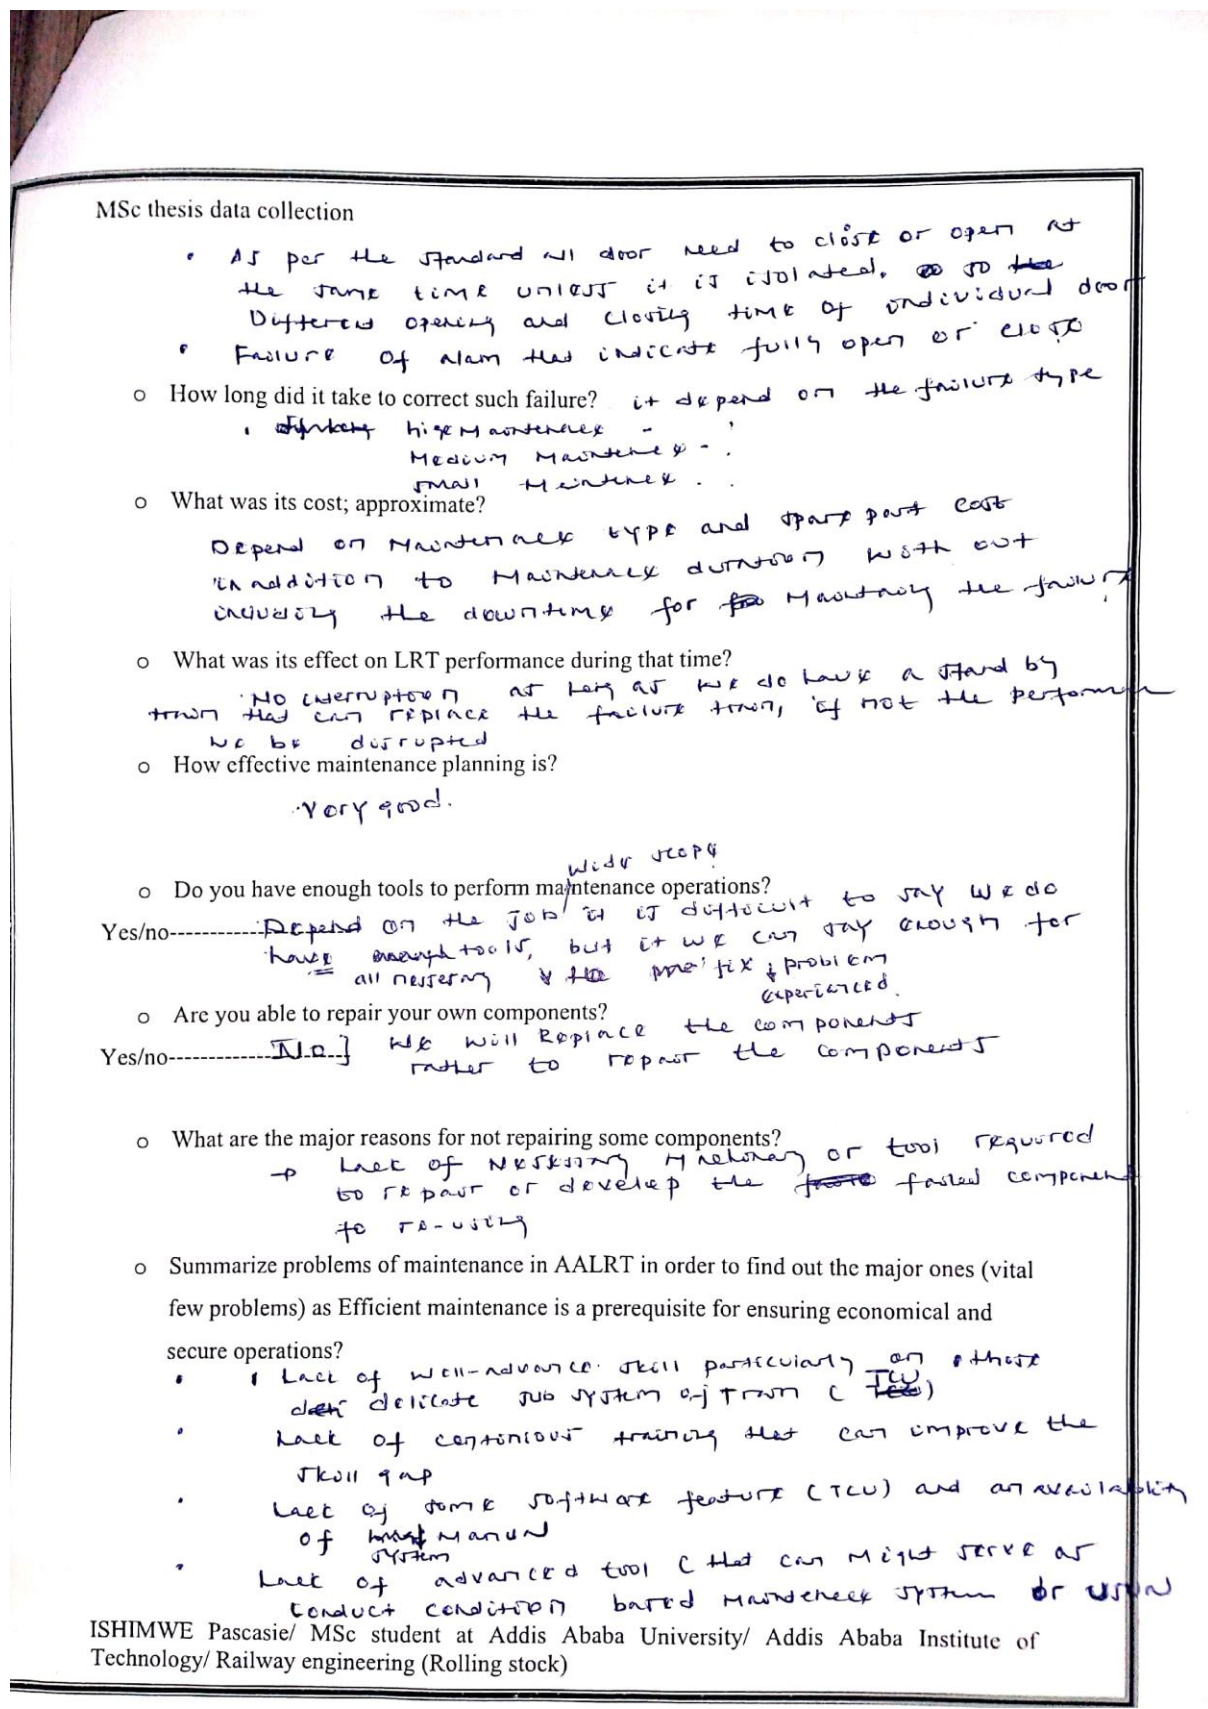 MSc thesis data collection
• As per the standard all door need to close or open at
the same time unless it is isolated. so
Different opening and closing time of individual door
• Failure of alam that indicate fully open or close
o How long did it take to correct such failure? it depend on the failure type
hige Maintenance -
Medium Maintenex -
small Maintenex .
o What was its cost; approximate?
Depend on Maintenance type and spare part cost
in addition to Maintenance duration with out
including the downtime for Maintaing the failure
o What was its effect on LRT performance during that time?
No interruption as long as we do have a stand by
train that can replace the failure train, if not the performan
be disrupted
o How effective maintenance planning is?
Very good.
wide scope
o Do you have enough tools to perform maintenance operations?
Yes/no------------Depend on the Job it is difficult to say we do
have enough tools, but it we can say enough for
all nessersry fix problem
experienced.
o Are you able to repair your own components?
Yes/no-------------No] We will Replace the components
rather to repair the components
o What are the major reasons for not repairing some components?
→ Lack of or tool required
to repair or develop the failed component
to re-using
o Summarize problems of maintenance in AALRT in order to find out the major ones (vital
few problems) as Efficient maintenance is a prerequisite for ensuring economical and
secure operations?
• Lack of well-advance skill particularly on those
delicate sub system of Train (TCU)
• Lack of continious training that can improve the
skill gap
• Lack of some software feature (TCU) and an availability
of Manual
system
• Lack of advanced tool (that can might serve as
conduct condition based system or usual
ISHIMWE Pascasie/ MSc student at Addis Ababa University/ Addis Ababa Institute of
Technology/ Railway engineering (Rolling stock)